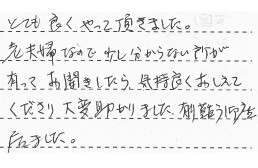 とても良くやって頂きました。
老夫婦なので少し分からない所が
有ってお聞きしたら、気持良くおしえて
くださり大変助かりました。有難うございま
した。